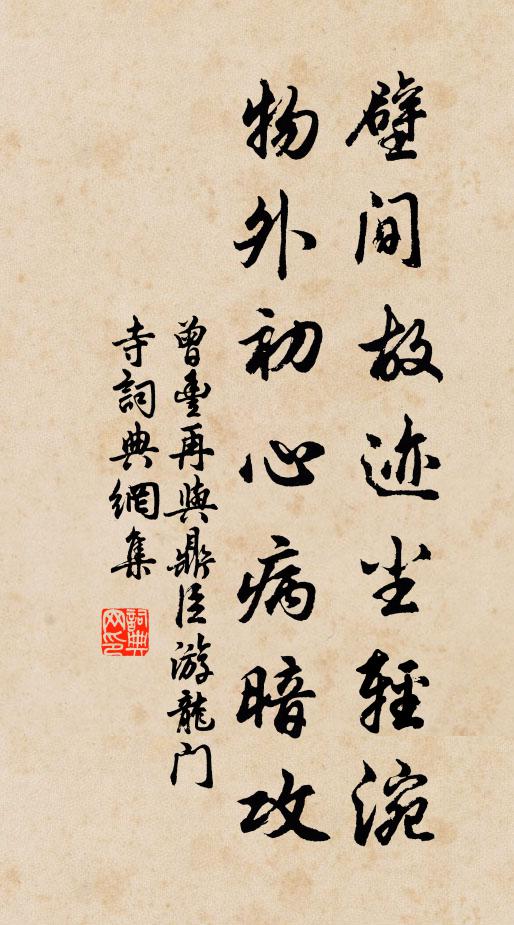 壁间故迹尘轻涴
物外初心病暗攻
曾豊再與鼎臣游龍门
寺詞典網集
詞典网印